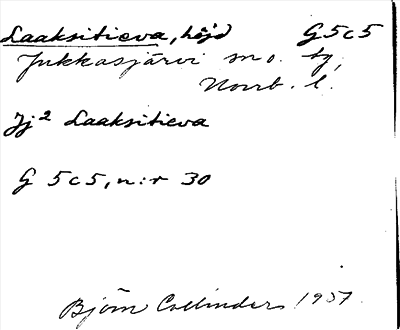 Laaksitieva, höjd G 5 c 5
Jukkasjärvi sn o. tg,
Norrb. l.
Jj² Laaksitieva
G 5 c 5, n:r 30
Björn Collinder 1937